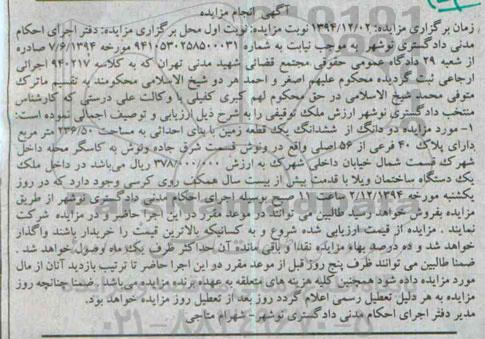 آگهی انجام مزایده
زمان برگزاری مزایده: ۱۳۹۴/۱۲/۰۲ نوبت مزایده: نوبت اول محل برگزاری مزایده: دفتر اجرای احکام
مدنی دادگستری نوشهر - به موجب نیابت به شماره ۹۴۱۰۵۳۰۲۵۸۵۰۰۰۳۱ مورخه ۷/۶/۱۳۹۴ صادره
از شعبه ۲۹ دادگاه عمومی حقوقی مجتمع قضائی شهید مدنی تهران که به کلاسه ۹۴۰۲۱۷ اجرائی
ارجاعی ثبت گردیده محکوم علیهم اصغر و احمد هر دو شیخ الاسلامی محکومند به تقسیم ماترک
متوفی محمد شیخ الاسلامی در حق محکوم لهم کبری کفیلی با وکالت علی درستی که کارشناس
منتخب دادگستری نوشهر ارزش ملک توقیفی را به شرح ذیل ارزیابی و توصیف اجمالی نموده است:
۱- مورد مزایده دو دانگ از ششدانگ یک قطعه زمین با بنای احداثی به مساحت ۲۳۶/۵۰ متر مربع
دارای پلاک ۴۰ فرعی از ۵۶ اصلی واقع در ونوش قسمت شرق جاده ونوش به کاسگر محله داخل
شهرک قسمت شمال خیابان داخلی شهرک به ارزش ۳۷۸/۰۰۰/۰۰۰ ریال می‌باشد در داخل ملک
یک دستگاه ساختمان ویلا با قدمت بیش از بیست سال همکف روی کرسی وجود دارد که در روز
یکشنبه مورخه ۲/۱۲/۱۳۹۴ ساعت ۱۰ صبح بوسیله اجرای احکام مدنی دادگستری نوشهر از طریق
مزایده بفروش خواهد رسید. طالبین می توانند در موعد مقرر در این اجرا حاضر و در مزایده شرکت
نمایند . مزایده از قیمت ارزیابی شده شروع و به کسانیکه بالاترین قیمت را خریدار باشند واگذار
خواهد شد و ده درصد بهاء مزایده نقدا و باقی مانده آن حداکثر ظرف یک ماه وصول خواهد شد .
ضمنا طالبین می توانند ظرف پنج روز قبل از موعد مقرر در این اجرا حاضر تا ترتیب بازدید آنان از مال
مورد مزایده داده شود همچنین کلیه هزینه های متعلقه به عهده برنده مزایده می‌باشد . ضمنا چنانچه روز
مزایده به هر دلیل تعطیل رسمی اعلام گردد روز بعد از تعطیل روز مزایده خواهد بود.
مدیر دفتر اجرای احکام مدنی دادگستری نوشهر - شهرام متاجی